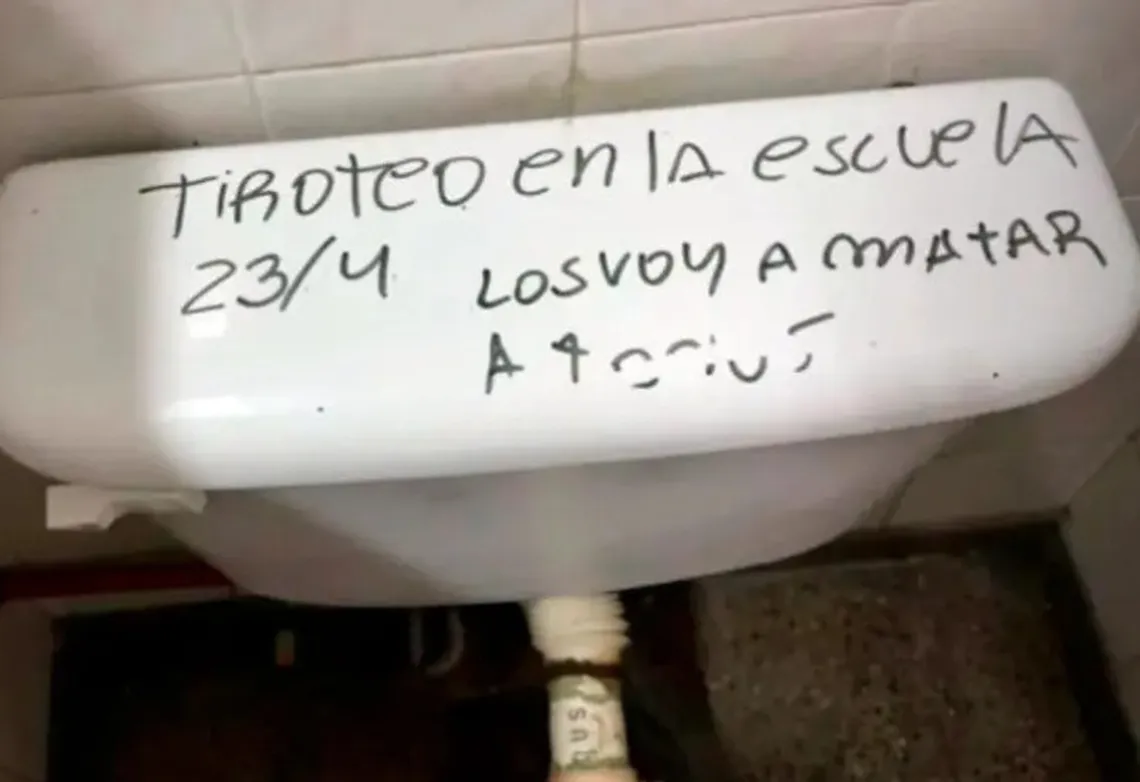 TiROTeO en lA escuelA
23/4 LOS VOY A MATAR
A